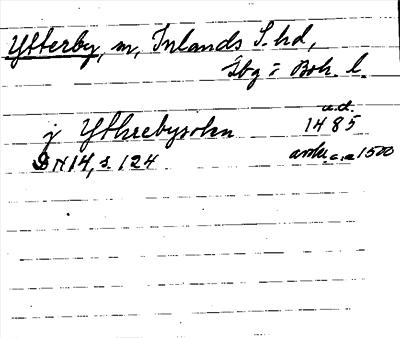 Ytterby, sn, Inlands S. hd,
Gbg o Boh. l.
u.d.
j Ythrebysokn 1485
DN 14, s. 124 avskr. c.a 1500